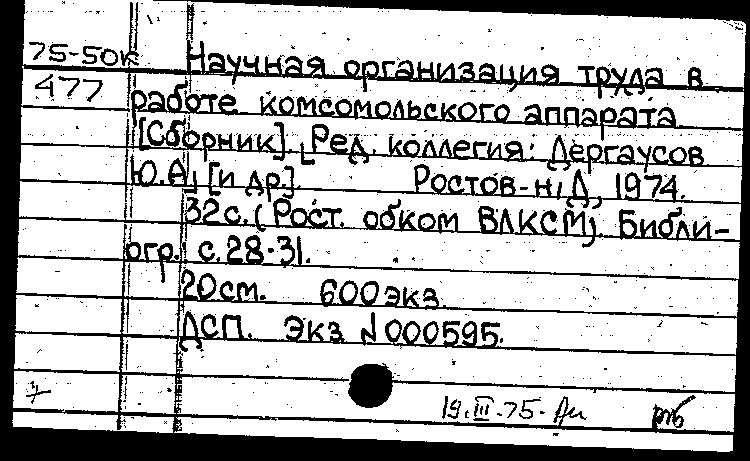 75-50к Научная организация труда в
477 работе комсомольского аппарата
[Сборник]. [Ред. коллегия: Дергаусов
Ю.А.] [и др.] Ростов-н/Д, 1974.
32с. (Рост. обком ВЛКСМ). Библи-
огр. с.28-31.
20см. 600экз.
ДСП. Экз №000595.
19.III.75.